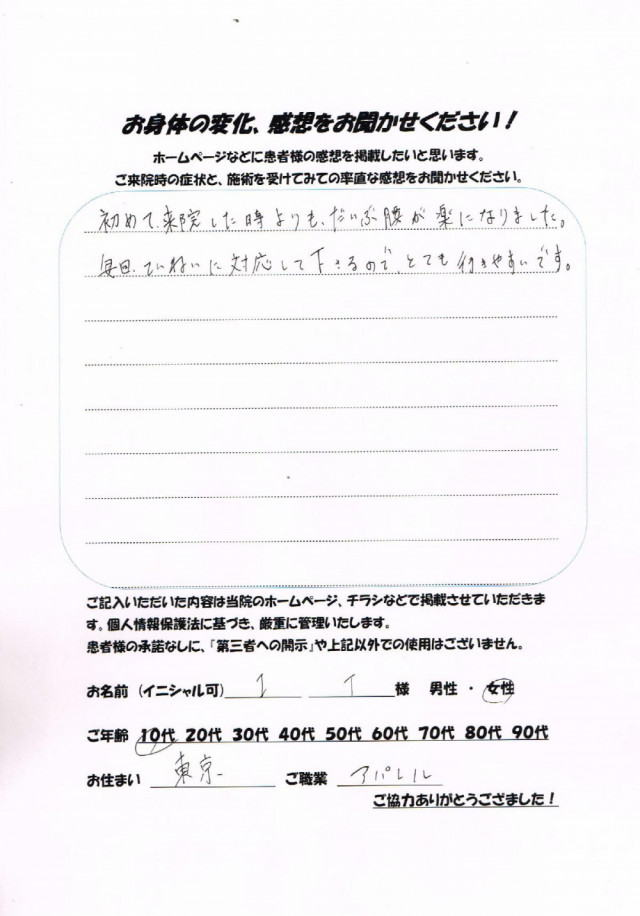 お身体の変化、感想をお聞かせください！
ホームページなどに患者様の感想を掲載したいと思います。
ご来院時の症状と、施術を受けてみての率直な感想をお聞かせください。
初めて来院した時よりも、だいぶ腰が楽になりました。
毎回、ていねいに対応して下さるので、とても行きやすいです。
ご記入いただいた内容は当院のホームページ、チラシなどで掲載させていただきま
す。個人情報保護法に基づき、厳重に管理いたします。
患者様の承諾なしに、「第三者への開示」や上記以外での使用はございません。
お名前（イニシャル可） I 様 男性 ・ 女性
ご年齢 10代 20代 30代 40代 50代 60代 70代 80代 90代
お住まい 東京 ご職業 アパレル
ご協力ありがとうござました！